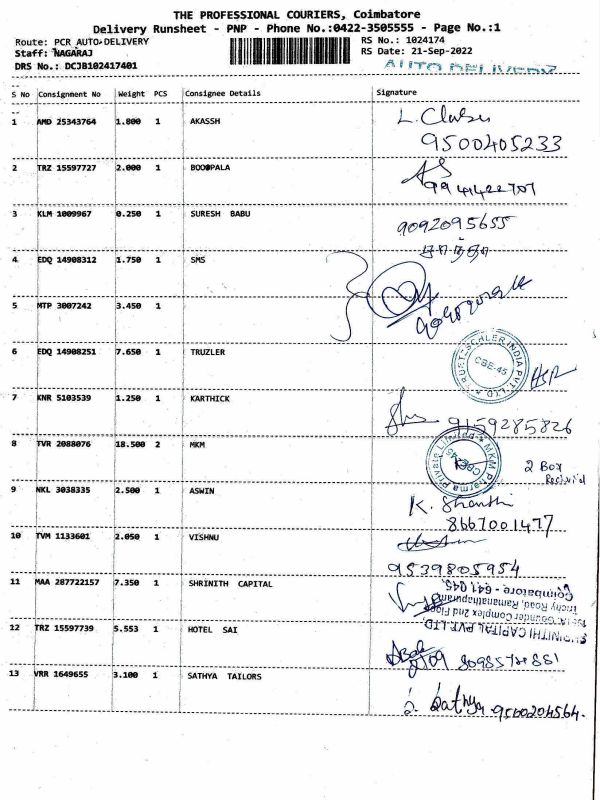 THE PROFESSIONAL COURIERS, Coimbatore
Delivery Runsheet - PNP - Phone No.:0422-3505555 - Page No.:1
Route: PCR AUTO DELIVERY RS No.: 1024174
Staff: NAGARAJ RS Date: 21-Sep-2022
DRS No.: DCJB102417401 AUTO DELIVERY
S No Consignment No Weight PCS Consignee Details Signature
1 AMD 25343764 1.800 1 AKASSH
9500405233
2 TRZ 15597727 2.000 1 BOOPALA
3 KLM 1009967 0.250 1 SURESH BABU 9092095655
4 EDQ 14908312 1.750 1 SMS
5 MTP 3007242 3.450 1
6 EDQ 14908251 7.650 1 TRUZLER CBE-45
7 KNR 5103539 1.250 1 KARTHICK
9159285826
8 TVR 2088076 18.500 2 MKM MKM Pharma Private Limited CBE-45 2 Box
9 NKL 3038335 2.500 1 ASWIN K. Shanthi
8667001477
10 TVM 1133601 2.050 1 VISHNU
9539805954
11 MAA 287722157 7.350 1 SHRINITH CAPITAL
Coimbatore - 641 045.
Trichy Road, Ramanathapuram
Gounder Complex 2nd Floor
SHRINITHI CAPITAL PVT LTD.
12 TRZ 15597739 5.553 1 HOTEL SAI
13 VRR 1649655 3.100 1 SATHYA TAILORS
Sathya 9500204564.